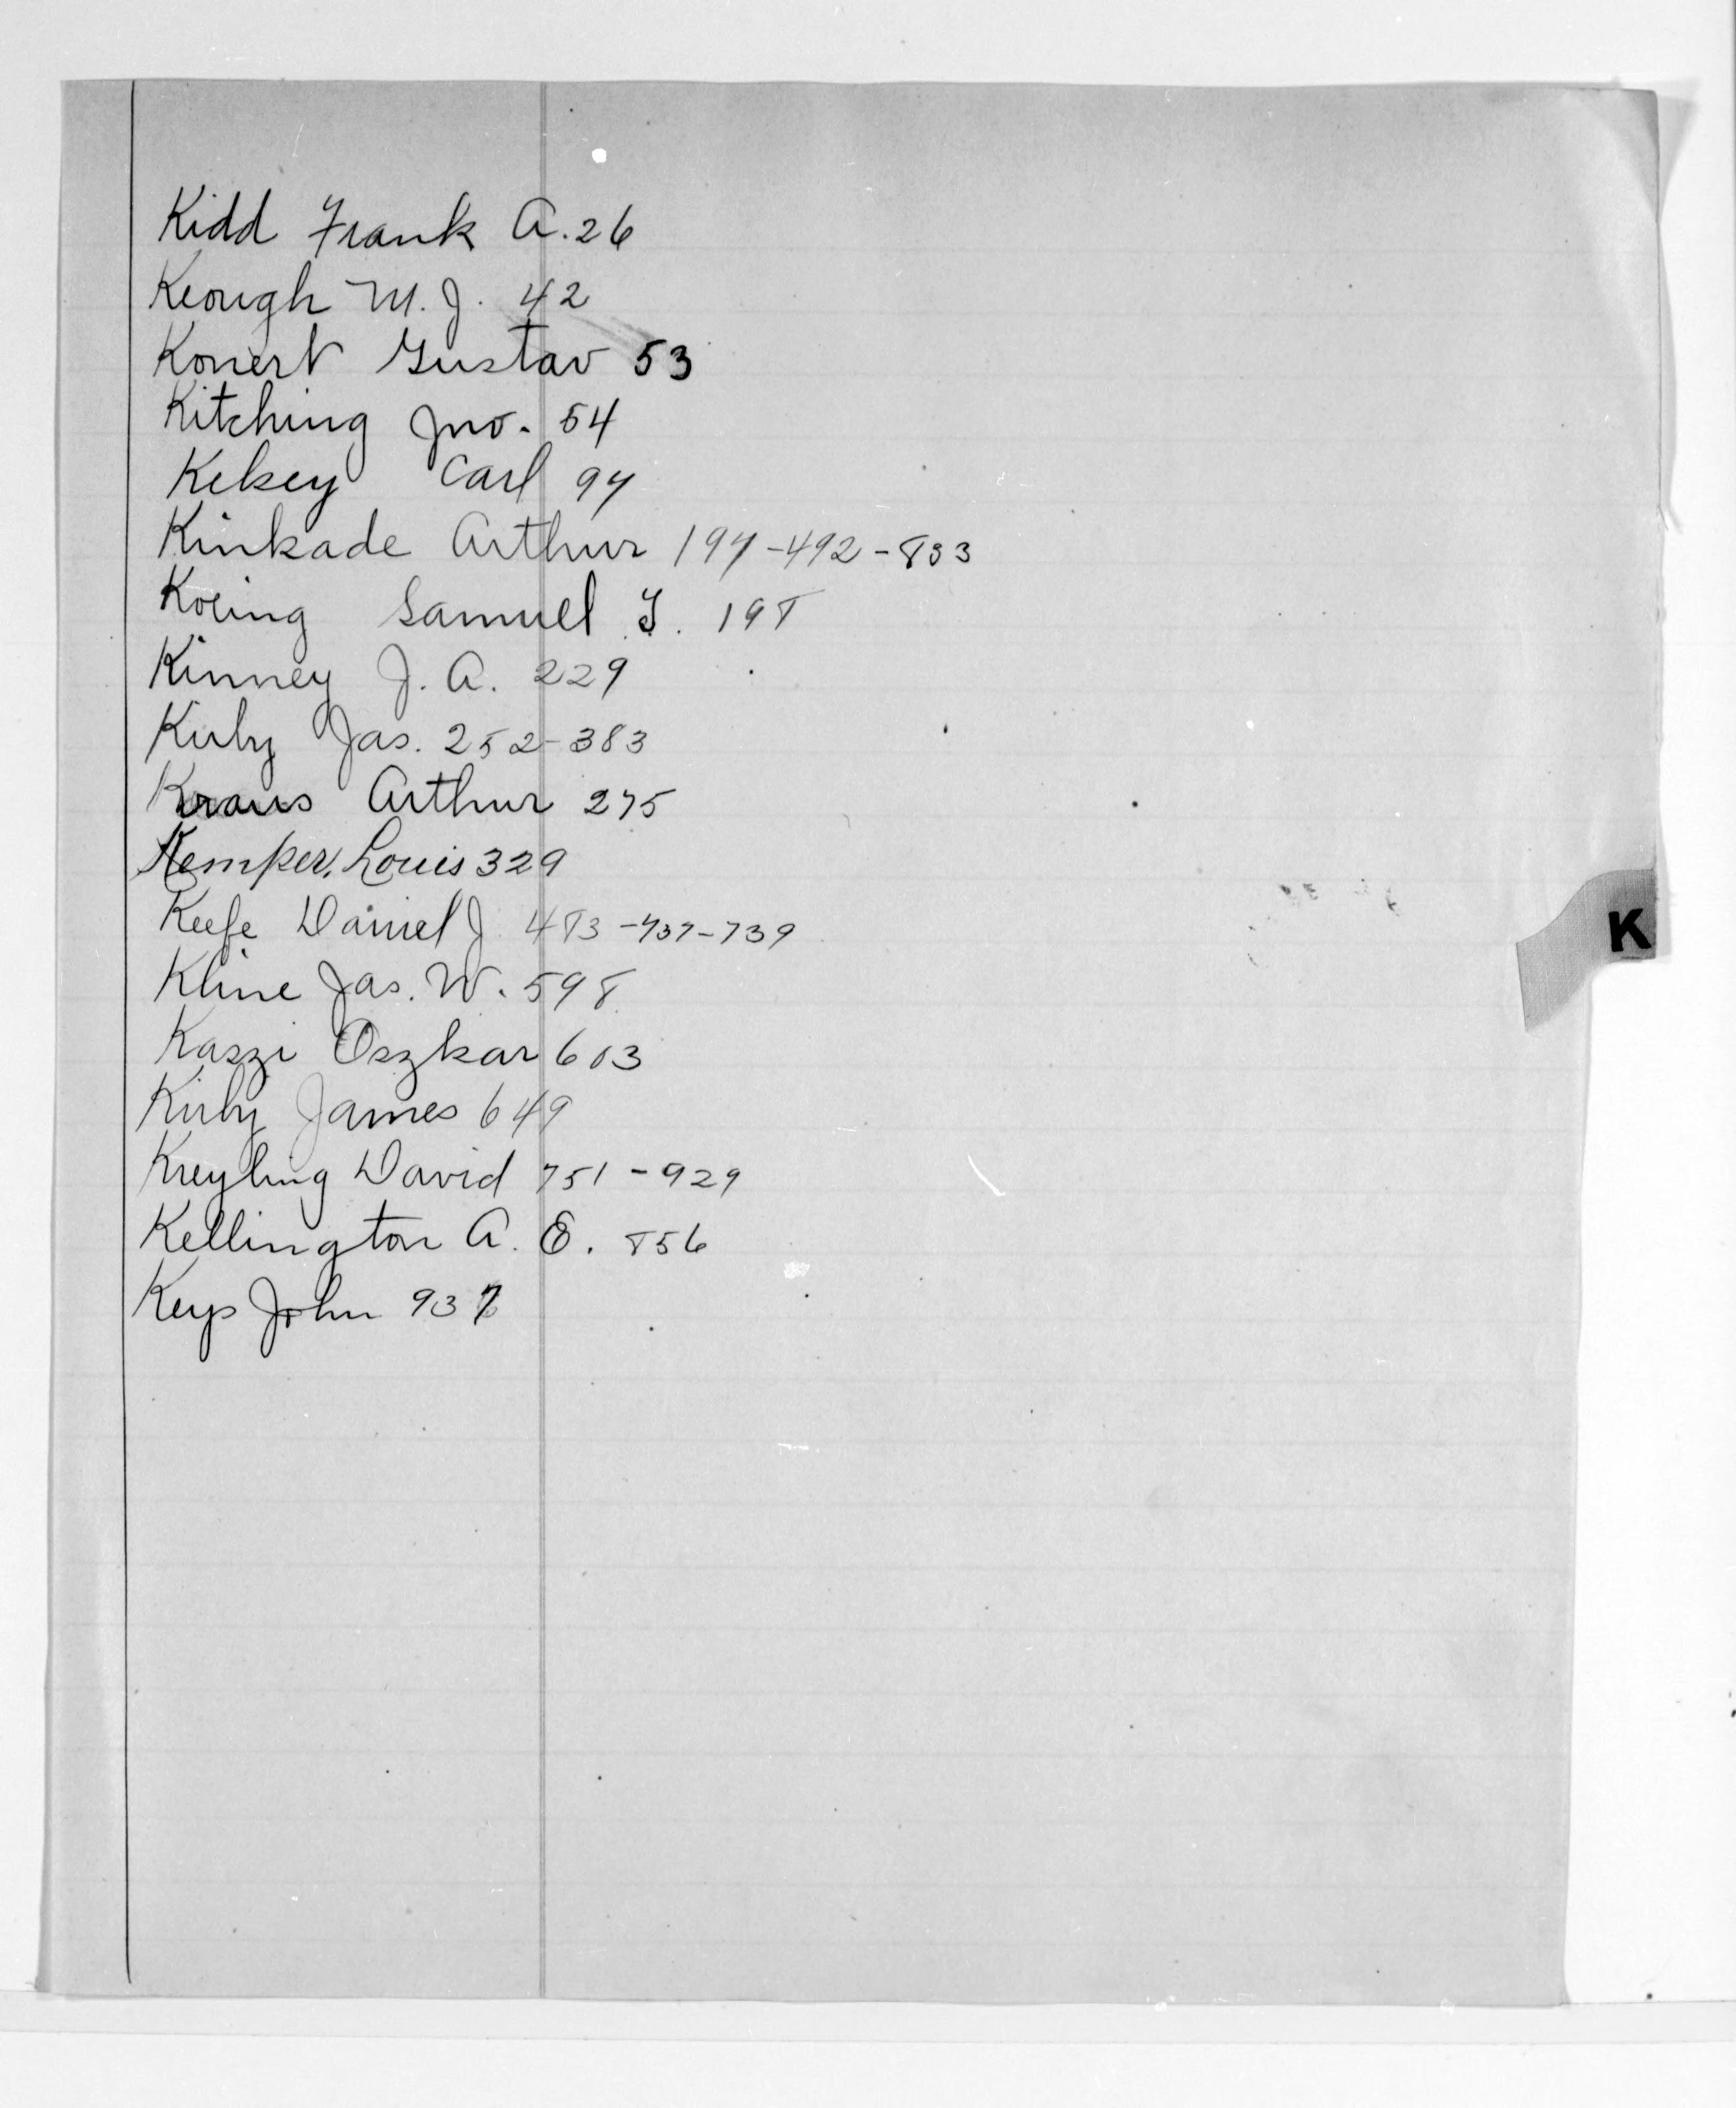 Kidd Frank A. 26
Keough M. J. 42
Konert Gustav 53
Kitching Jno. 54
Kelsey Carl 97
Kinkade Arthur 197-492-833
Koeing Samuel S. 198
Kinney J. A. 229
Kirby Jas. 252-383
Kraus Arthur 275
Kemper, Louis 329
Keefe Daniel J 483-737-739
K
Kline Jas. W. 598
Kaszi Oszkar 603
Kirby James 649
Kreyling David 751-929
Kellington A. E. 856
Keys John 937